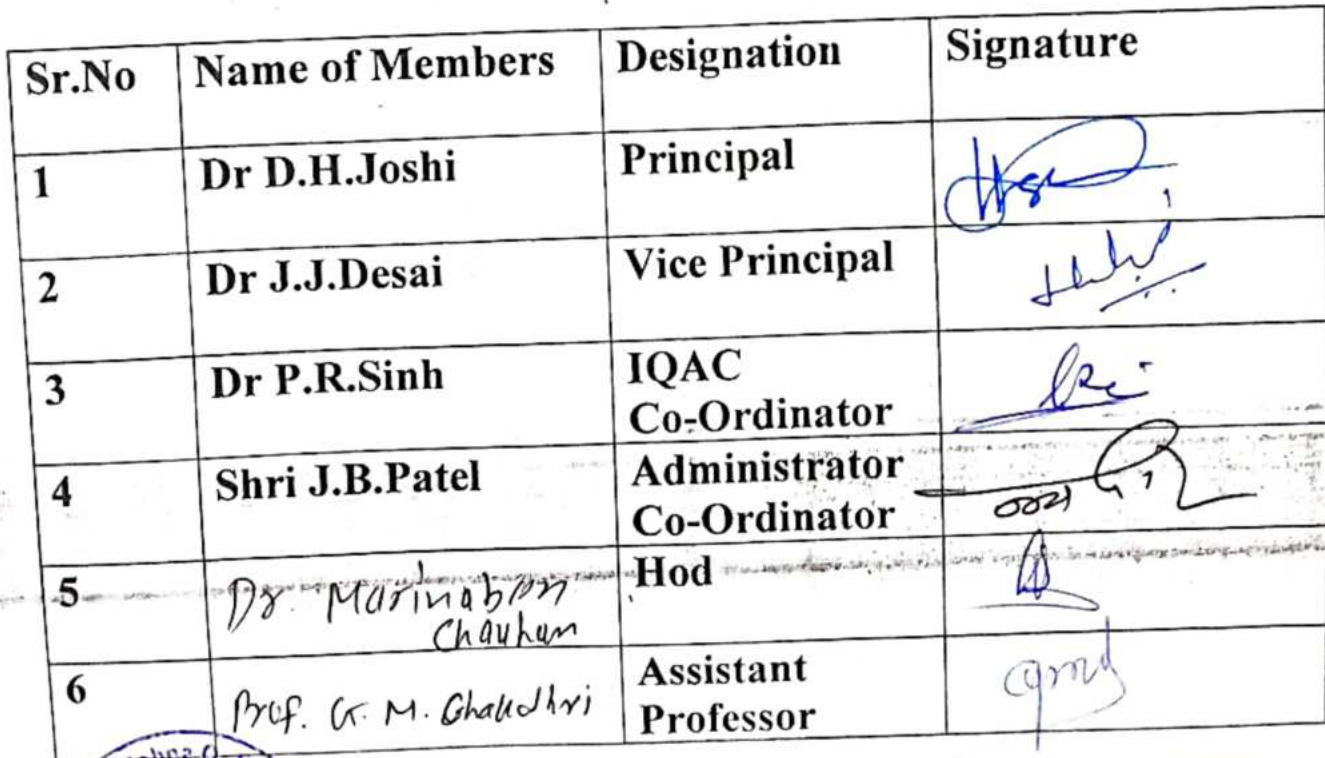 Sr.No Name of Members Designation Signature
1 Dr D.H.Joshi Principal
2 Dr J.J.Desai Vice Principal
3 Dr P.R.Sinh IQAC
Co-Ordinator
4 Shri J.B.Patel Administrator
Co-Ordinator
5 Dr. Marinaben Hod
Chauhan
6 Prof. G. M. Chaudhri Assistant
Professor